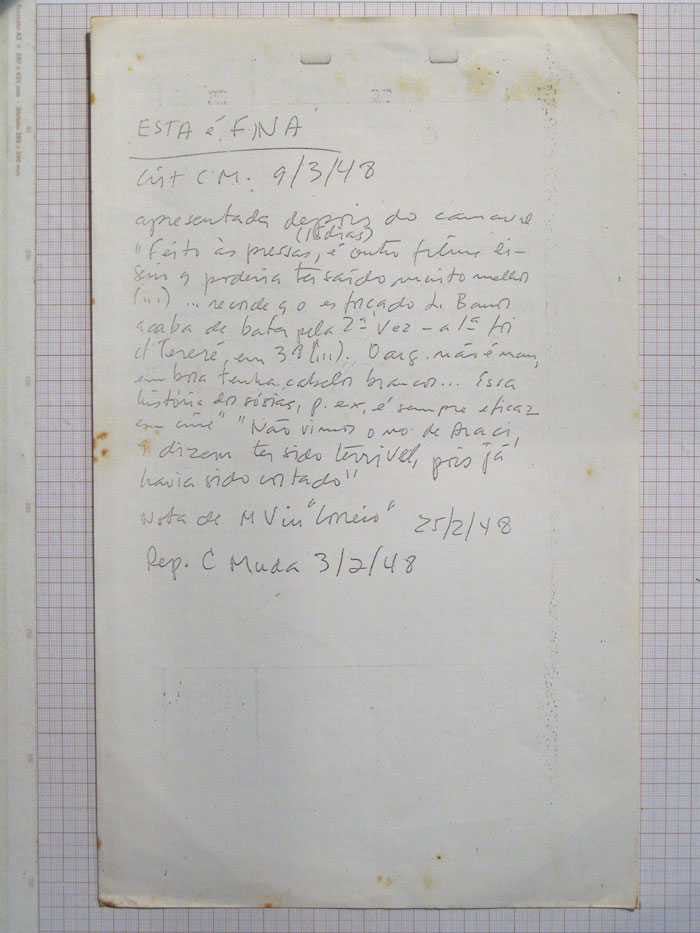 ESTA é FINA
C.M. 9/3/48
apresentada depois do carnaval
(15 dias)
"Feito às pressas, é outro filme li-
geiro q poderia ter saído muito melhor
(...) ... recorde q o esforçado L. Barros
acaba de bater pela 2ª vez - a 1ª foi
c/ Tereré, em 38 (...). O arg. não é mau,
embora tenha cabelos brancos... Essa
história dos sósias, p. ex, é sempre eficaz
em cine" "Não vimos o no. de Araci,
q dizem ter sido terrível, pois já
havia sido cortado"
Nota de M Viu "Correio" 25/2/48
Rep. C Muda 3/2/48